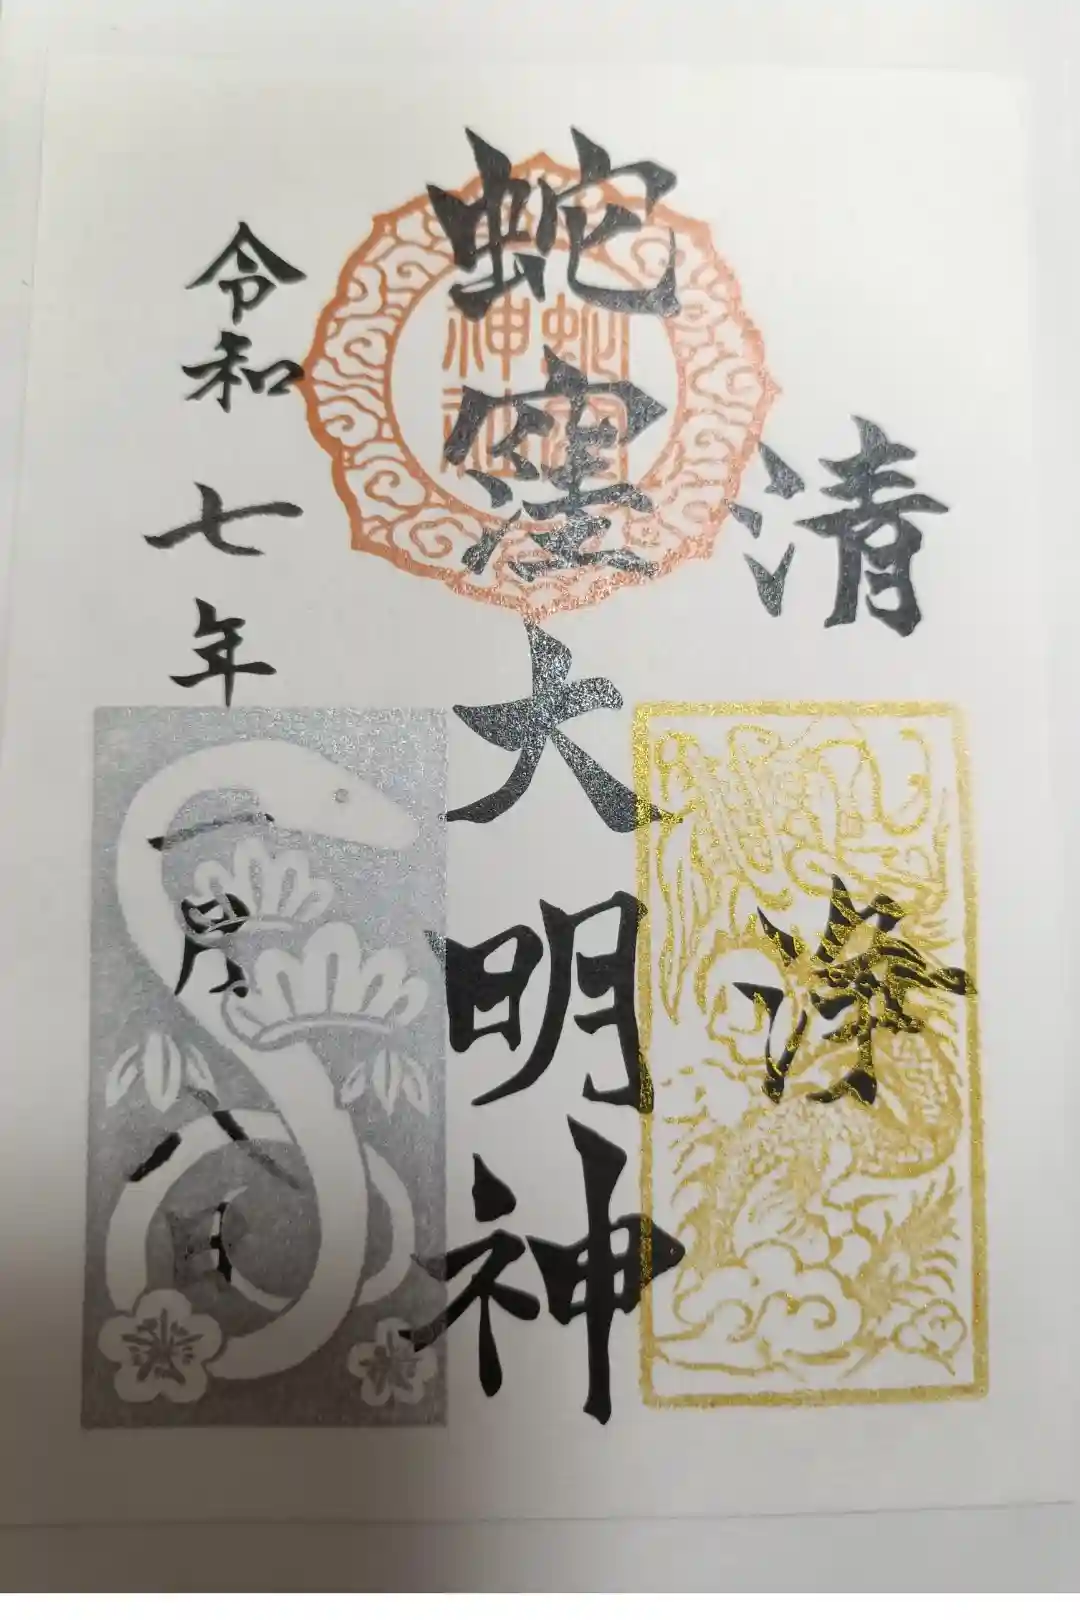 清浄
蛇窪大明神
蛇窪神社
令和七年一月八日